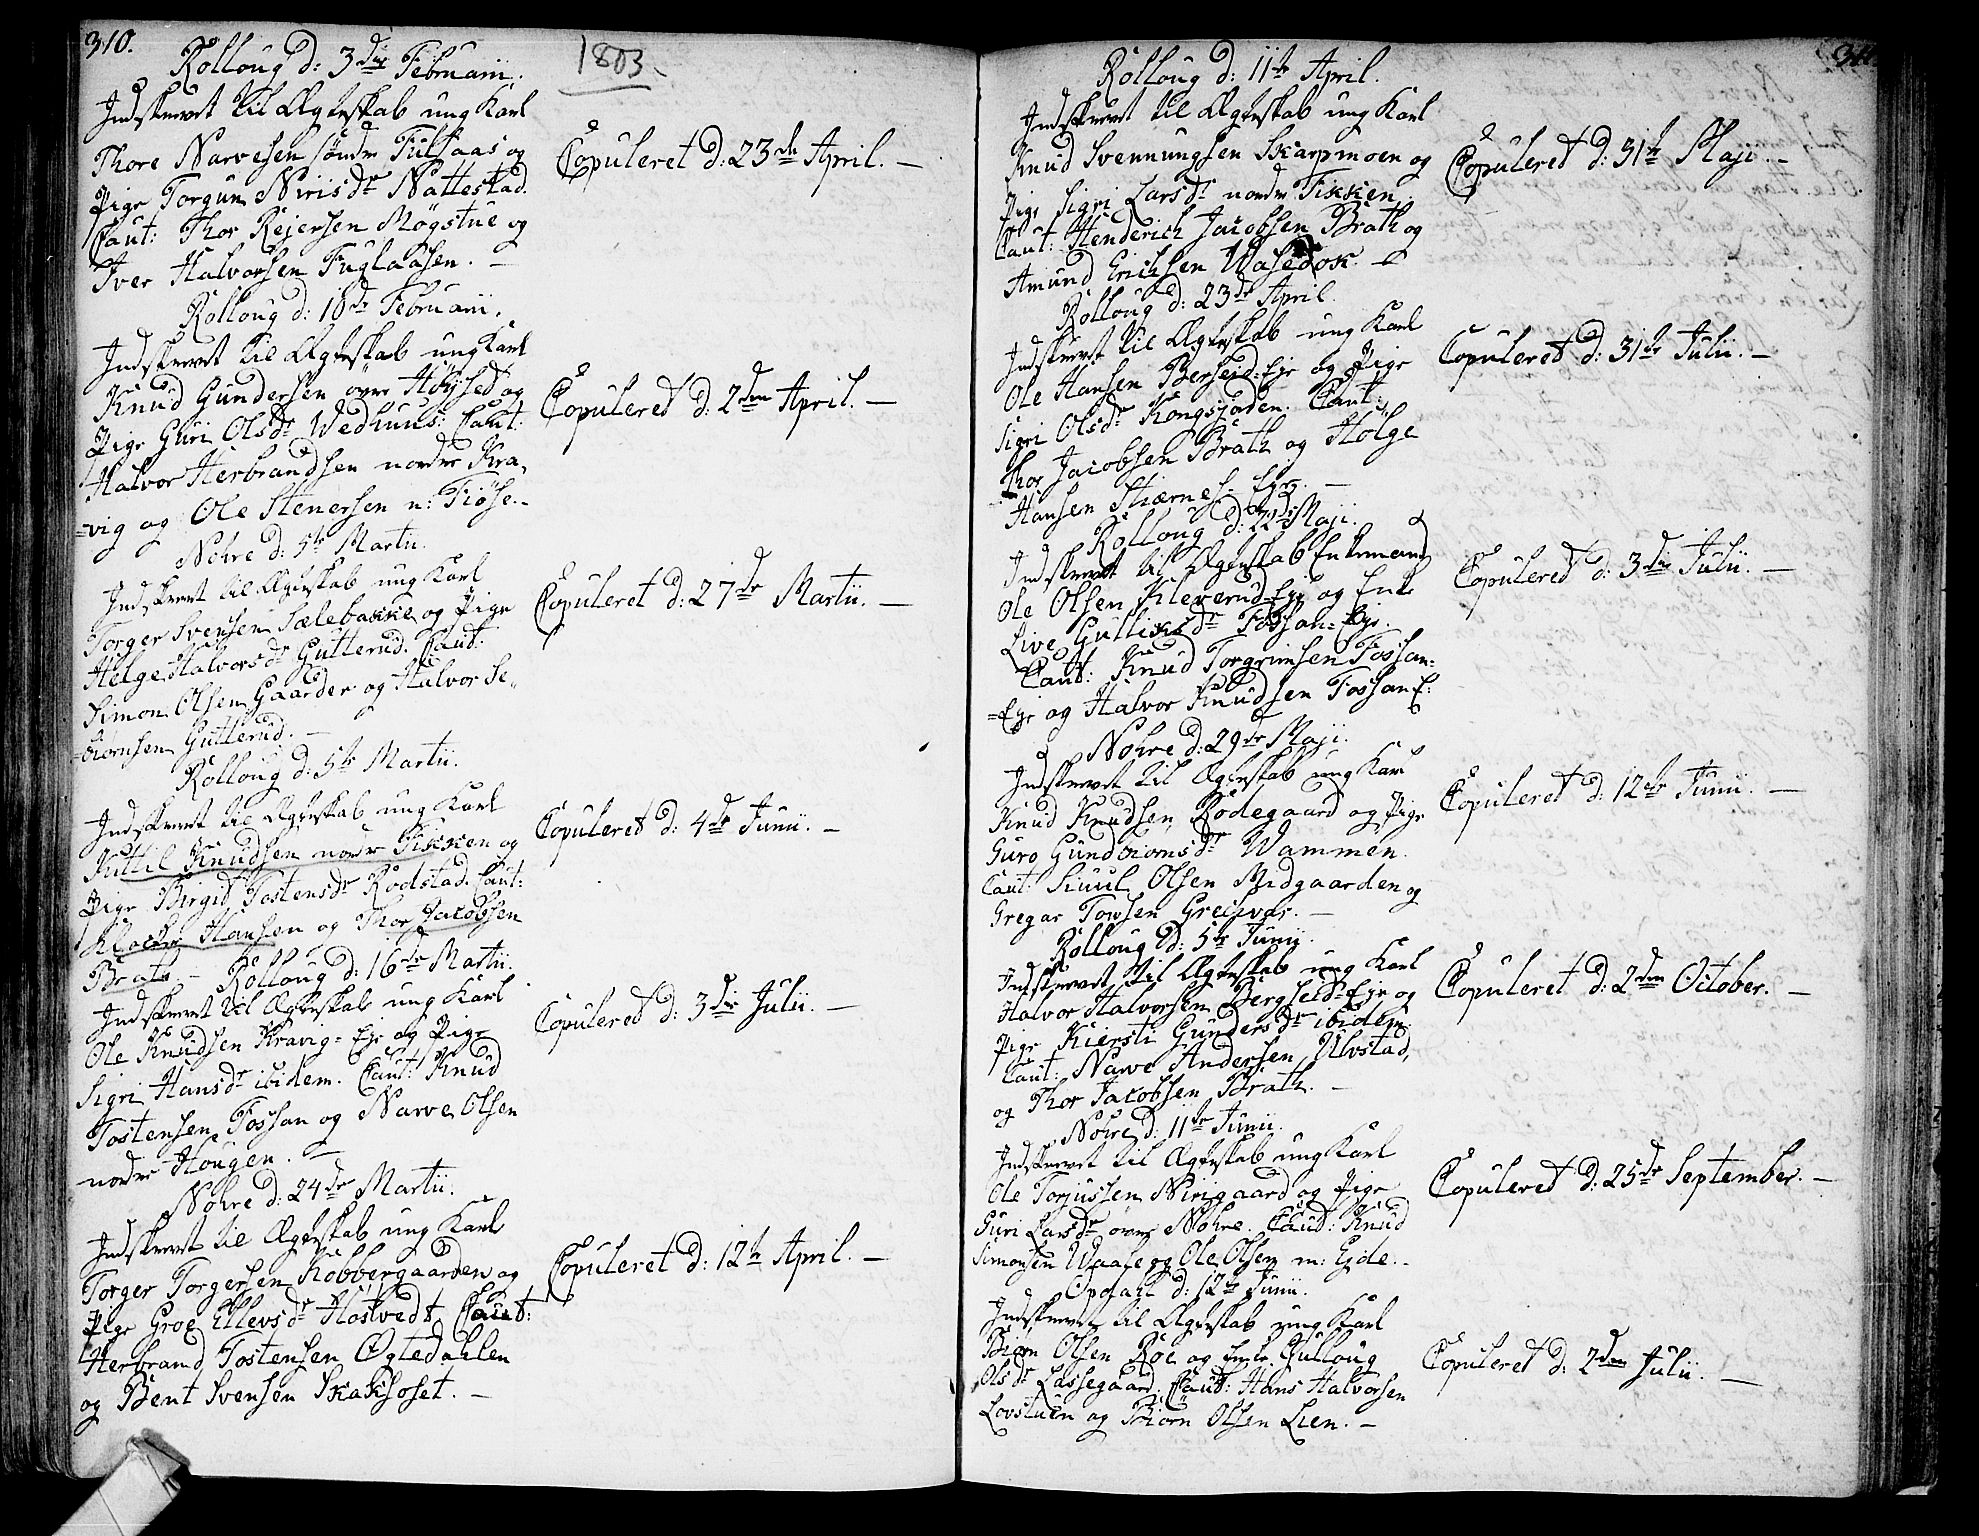 310.
1803.
Rolloug d: 3die Februarii.
Indskrevet til Ægteskab ung Karl
Thore Narvesen søndre Fulsaas og
Pige Torgun Nirisdr Nattestad.
Caut: Thor Rejersen Møgstue og
Iver Halvorsen Fuglaasen. —
Copuleret d: 23de April. —
Rolloug d: 18de Februarii.
Indskrevet til Ægteskab ung Karl
Knud Gundersen øvre Høysed og
Pige Guri Olsdr Wedhuus: Caut:
Halvor Herbrandsen nordre Kra-
-vig og Ole Stenersen n: Fiøse. -
Copuleret d: 2den April. —
Nohre d: 5te Martii.
Indskrevet til Ægteskab ung Karl
Torger Svensen Sælebakke og Pige
Helge Halvorsdr Gutterud. Caut:
Simon Olsen Gaarder og Halvor Se-
-biørnsen Gutterud. —
Copuleret d: 27de Martii. —
Rolloug d: 5te Martii.
Indskrevet til Ægteskab ung Karl
Kittil Knudsen nordre Fikkien og
Pige Birgit Tostensdr Rodstad. Caut:
Hansen og Thor Jacobsen
Brath. —
Copuleret d: 4de Junii. —
Rolloug d: 16de Martii.
Indskrevet til Ægteskab ung Karl
Ole Knudsen Kravig-Eje og Pige
Sigri Hansdr ibidem. Caut: Knud
Tostensen Fossan og Narve Olsen
nordre Hougen. —
Copuleret d: 3die Julii. —
Nohre d: 24de Martii.
Indskrevet til Ægteskab ung Karl
Torger Torgersen Kobbergaarden og
Pige Groe Ellevsdr Hostvedt Caut:
Herbrand Tostensen Øgtedahlen
og Bent Svensen Skakshoset. —
Copuleret d: 12te April. —
311.
Rolloug d: 11te April.
Indskrevet til Ægteskab ung Karl
Knud Svennungsen Skarpmoen og
Pige Sigri Larsdr nordre Fikkien.
Caut: Henderich Jacobsen Brath og
Amund Erichsen
Copuleret d: 31te Maji. —
Rolloug d: 23de April.
Indskrevet til Ægteskab ung Karl
Ole Hansen Berseid-Eje og Pige
Sigri Olsdr Kongsjorden. Caut:
Thor Jacobsen Brath og Holge
Hansen Stiærnes-Ejer. —
Copuleret d: 31te Julii. —
Rolloug d: 22de Maji.
Indskrevet til Ægteskab Enkemand
Ole Olsen Kleverud-Eje og Enke
Live Gulliksdr Fossan-Eje.
Caut: Knud Torgrimsen Fossan-
-Eje og Halvor Knudsen Fossan E:
Copuleret d: 3die Julii. —
Nohre d: 29de Maji.
Indskrevet til Ægteskab ung Karl
Knud Knudsen Rodegaard og Pige
Guro Gundbiornsdr Wammen.
Caut: Siuul Olsen Midgaarden og
Gregar Torsen Greisvar. —
Copuleret d: 12te Junii. —
Rolloug d: 5te Junii.
Indskrevet til Ægteskab ung Karl
Halvor Halvorsen Bergseid-Eje og
Pige Kiersti Gundersdr ibidem.
Caut: Narve Andersen Ulvstad,
og Thor Jacobsen Brath. —
Copuleret d: 2den October. —
Nohre d: 11te Junii.
Indskrevet til Ægteskab ung Karl
Ole Torjussen Nirigaard og Pige
Guri Larsdr øvre Nohre. Caut: Knud
Simonsen Waale og Ole Olsen m: Ejde. -
Copuleret d: 25de September. —
Opdahl d: 12te Junii.
Indskrevet til Ægteskab ung Karl
Biørn Olsen Røe og Enke Gulloug
Olsdr Lassegaard. Caut: Hans Halvorsen
Lovstuen og Biørn Olsen Lien. —
Copuleret d: 2den Julii. —